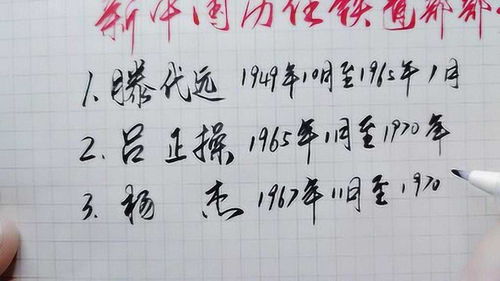 新中国历任铁道部部
1.滕代远 1949年10月至1965年1月
2.吕正操 1965年1月至1970年
3.杨 杰 1967年11月至1970